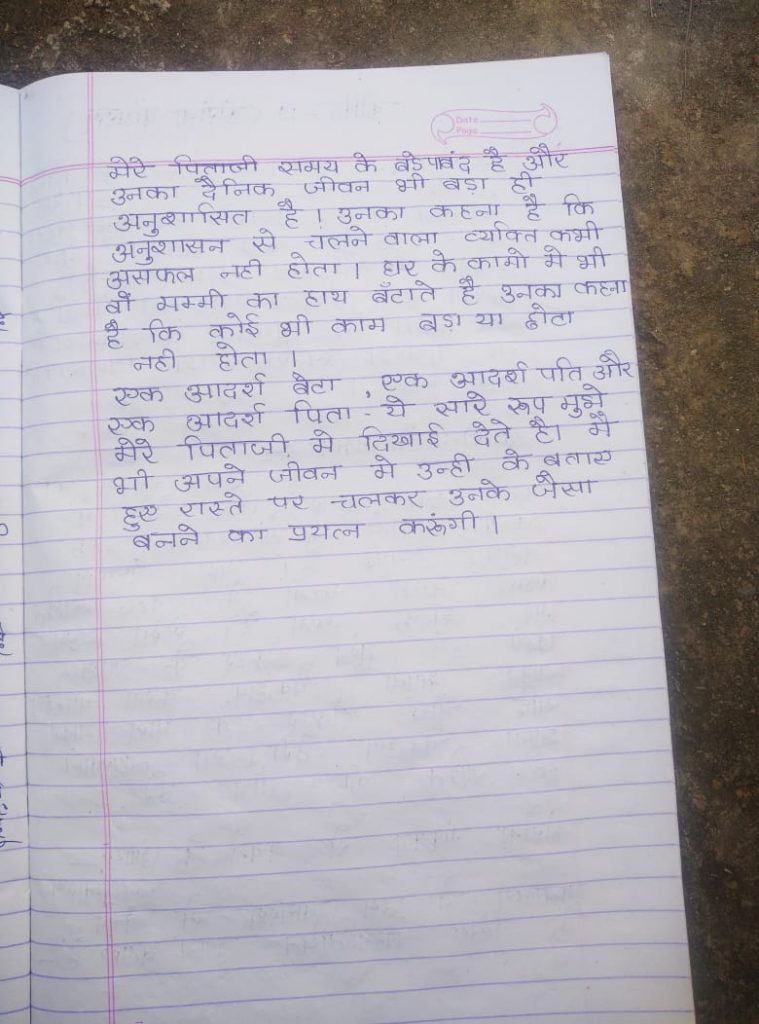 Date
Page
मेरे पिताजी समय के बड़े पाबंद है और
उनका दैनिक जीवन भी बड़ा ही
अनुशासित है। उनका कहना है कि
अनुशासन से चलने वाला व्यक्ति कभी
असफल नही होता। घर के कामो मे भी
वो मम्मी का हाथ बँटाते है उनका कहना
है कि कोई भी काम बड़ा या छोटा
नही होता।
एक आदर्श बेटा, एक आदर्श पति और
एक आदर्श पिता - ये सारे रूप मुझे
मेरे पिताजी मे दिखाई देते है। मै
भी अपने जीवन मे उन्ही के बताए
हुए रास्ते पर चलकर उनके जैसा
बनने का प्रयत्न करूंगी।